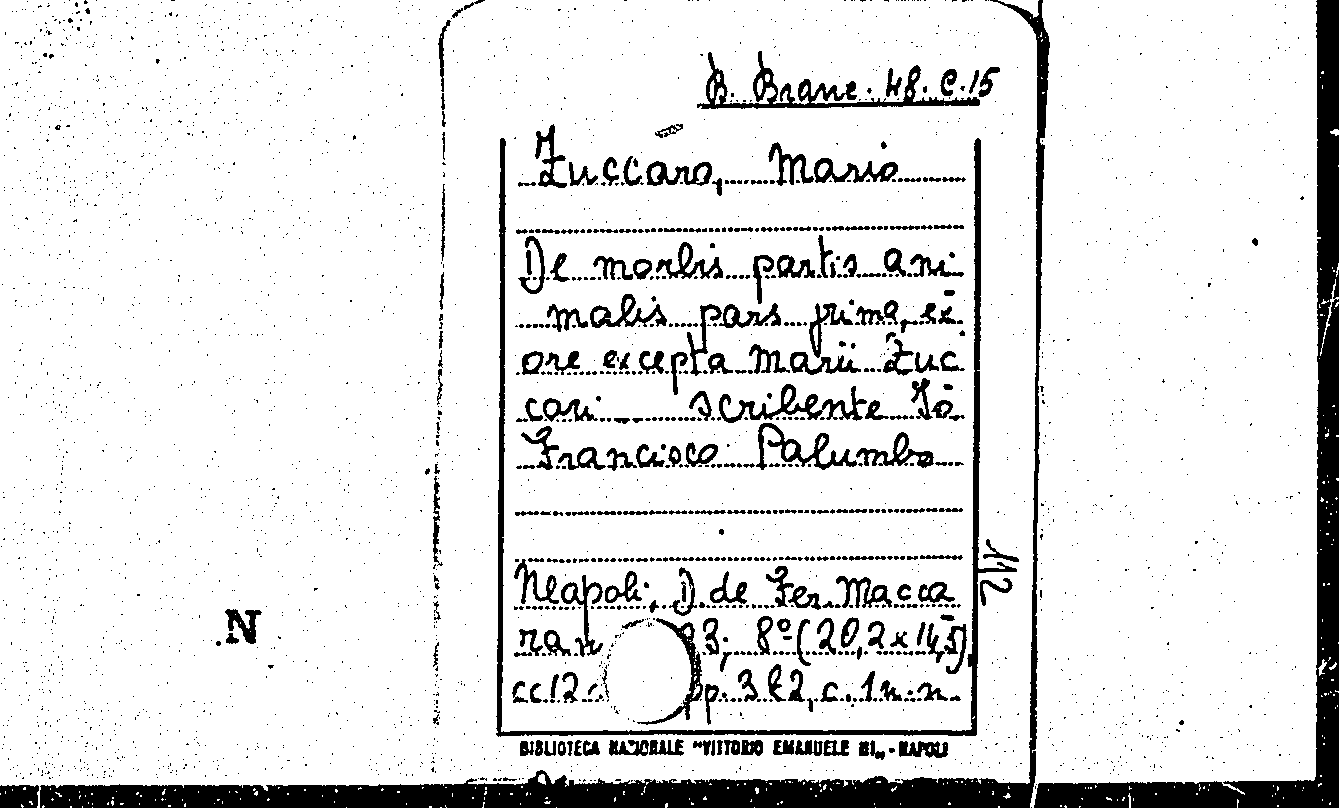 B. Branc. 48. C. 15
Zuccaro, Mario
De morbis partis ani
malis pars prima, ex
ore excepta Marii Zuc
cari scribente Jo
Francisco Palumbo
Neapoli, D. de Fer. Macca
ran 3; 8º (20,2 x 14,5)
cc 12 pp. 382, c. 1 n.n.
112
N
BIBLIOTECA NAZIONALE "VITTORIO EMANUELE III„ - NAPOLI